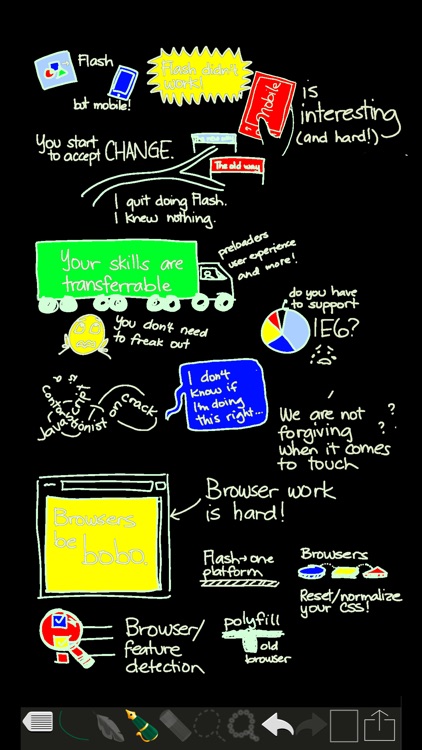 Flash
but mobile!
Flash didn't
work!
Mobile
is
interesting
(and hard!)
You start
to accept CHANGE.
The old way
I quit doing Flash.
I knew nothing.
Your skills are
transferrable
preloaders
user experience
and more!
You don't need
to freak out
do you have
to support
IE6?
is a
Javascript
contortionist
on crack
I don't
know if
I'm doing
this right...
We are not
forgiving
when it comes
to touch
? ?
Browsers
be bobo.
Browser work
is hard!
Flash→one
platform
Browsers
Reset/normalize
your CSS!
Browser/
feature
detection
polyfill
old
browser